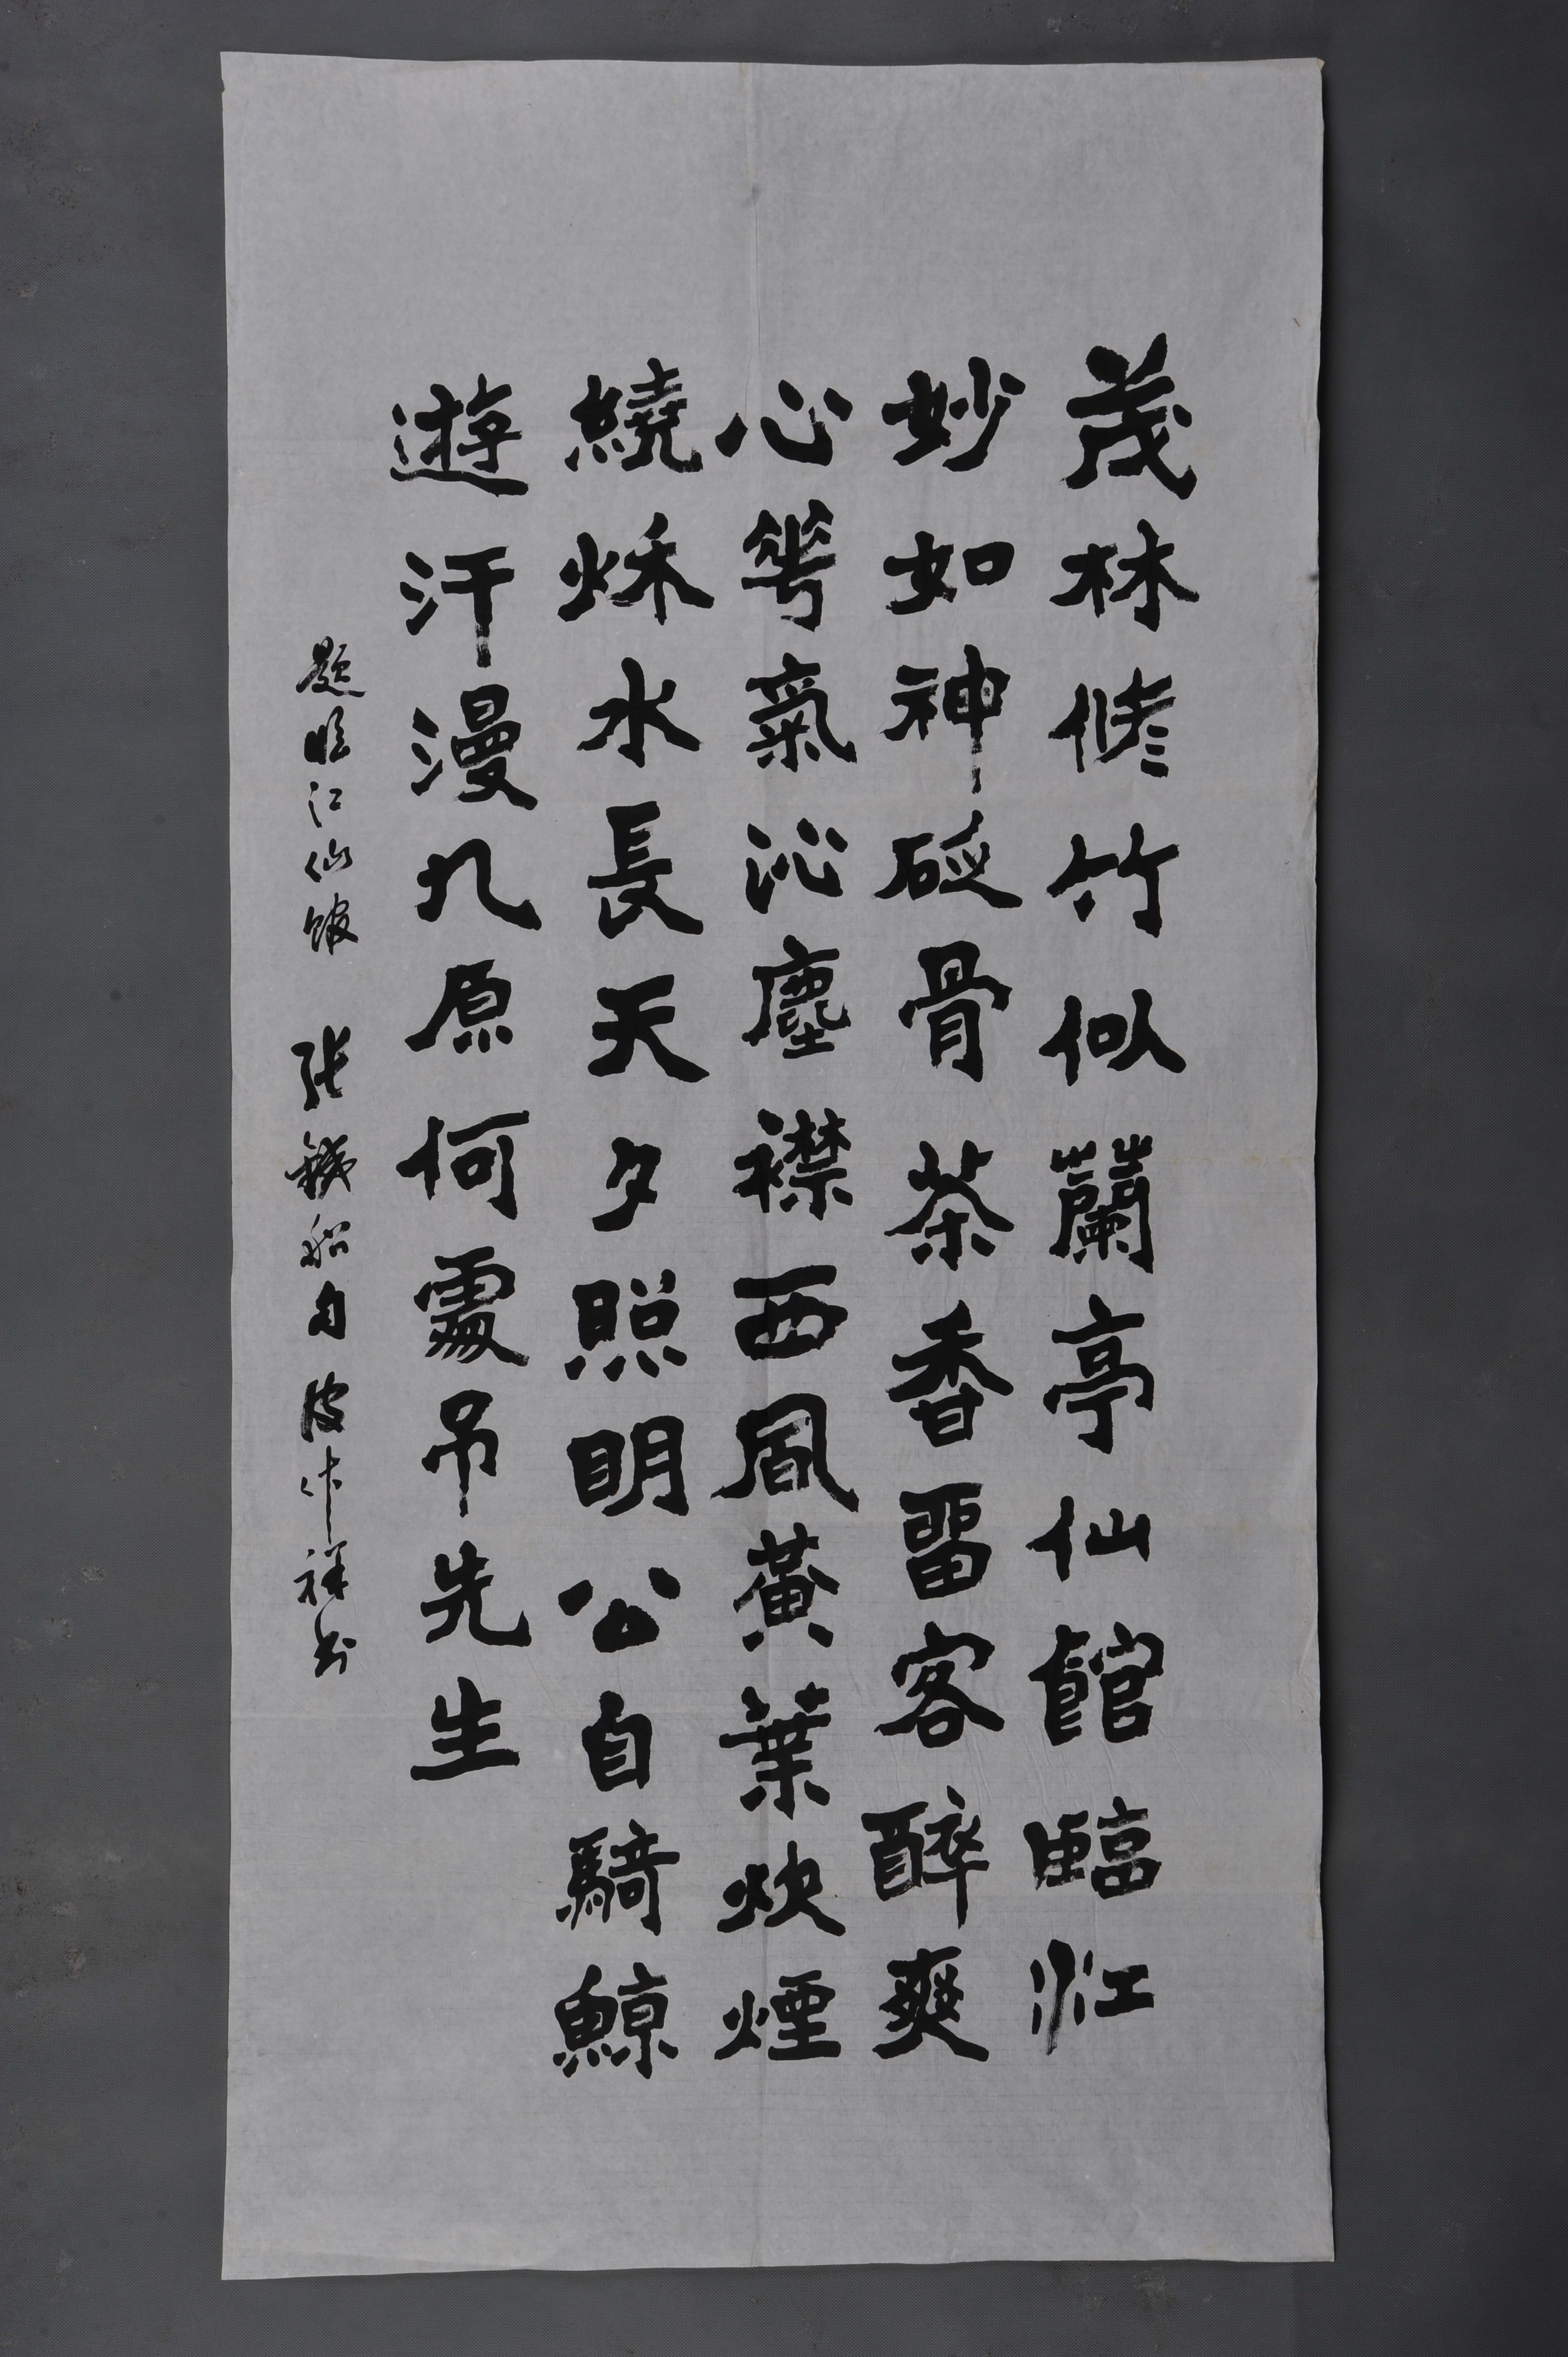 茂林修竹似蘭亭仙館臨江
妙如神砭骨茶香留客醉爽
心華氣沁塵襟西風黃葉炊煙
繞秌水長天夕照明公自騎鯨
遊汗漫九原何處吊先生
題臨江仙館 張鐵船句 作祥書